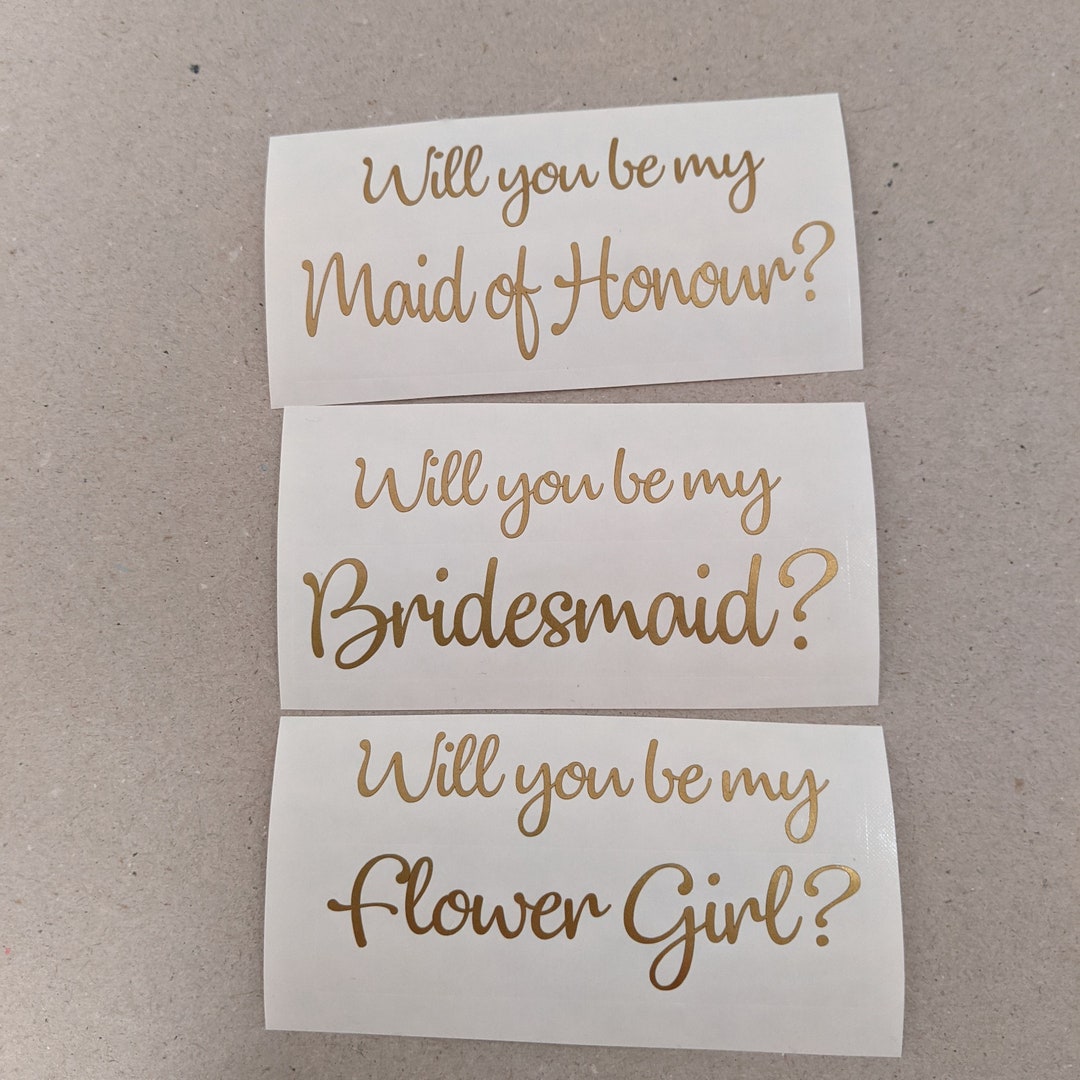 Will you be my
Maid of Honour?
Will you be my
Bridesmaid?
Will you be my
Flower Girl?